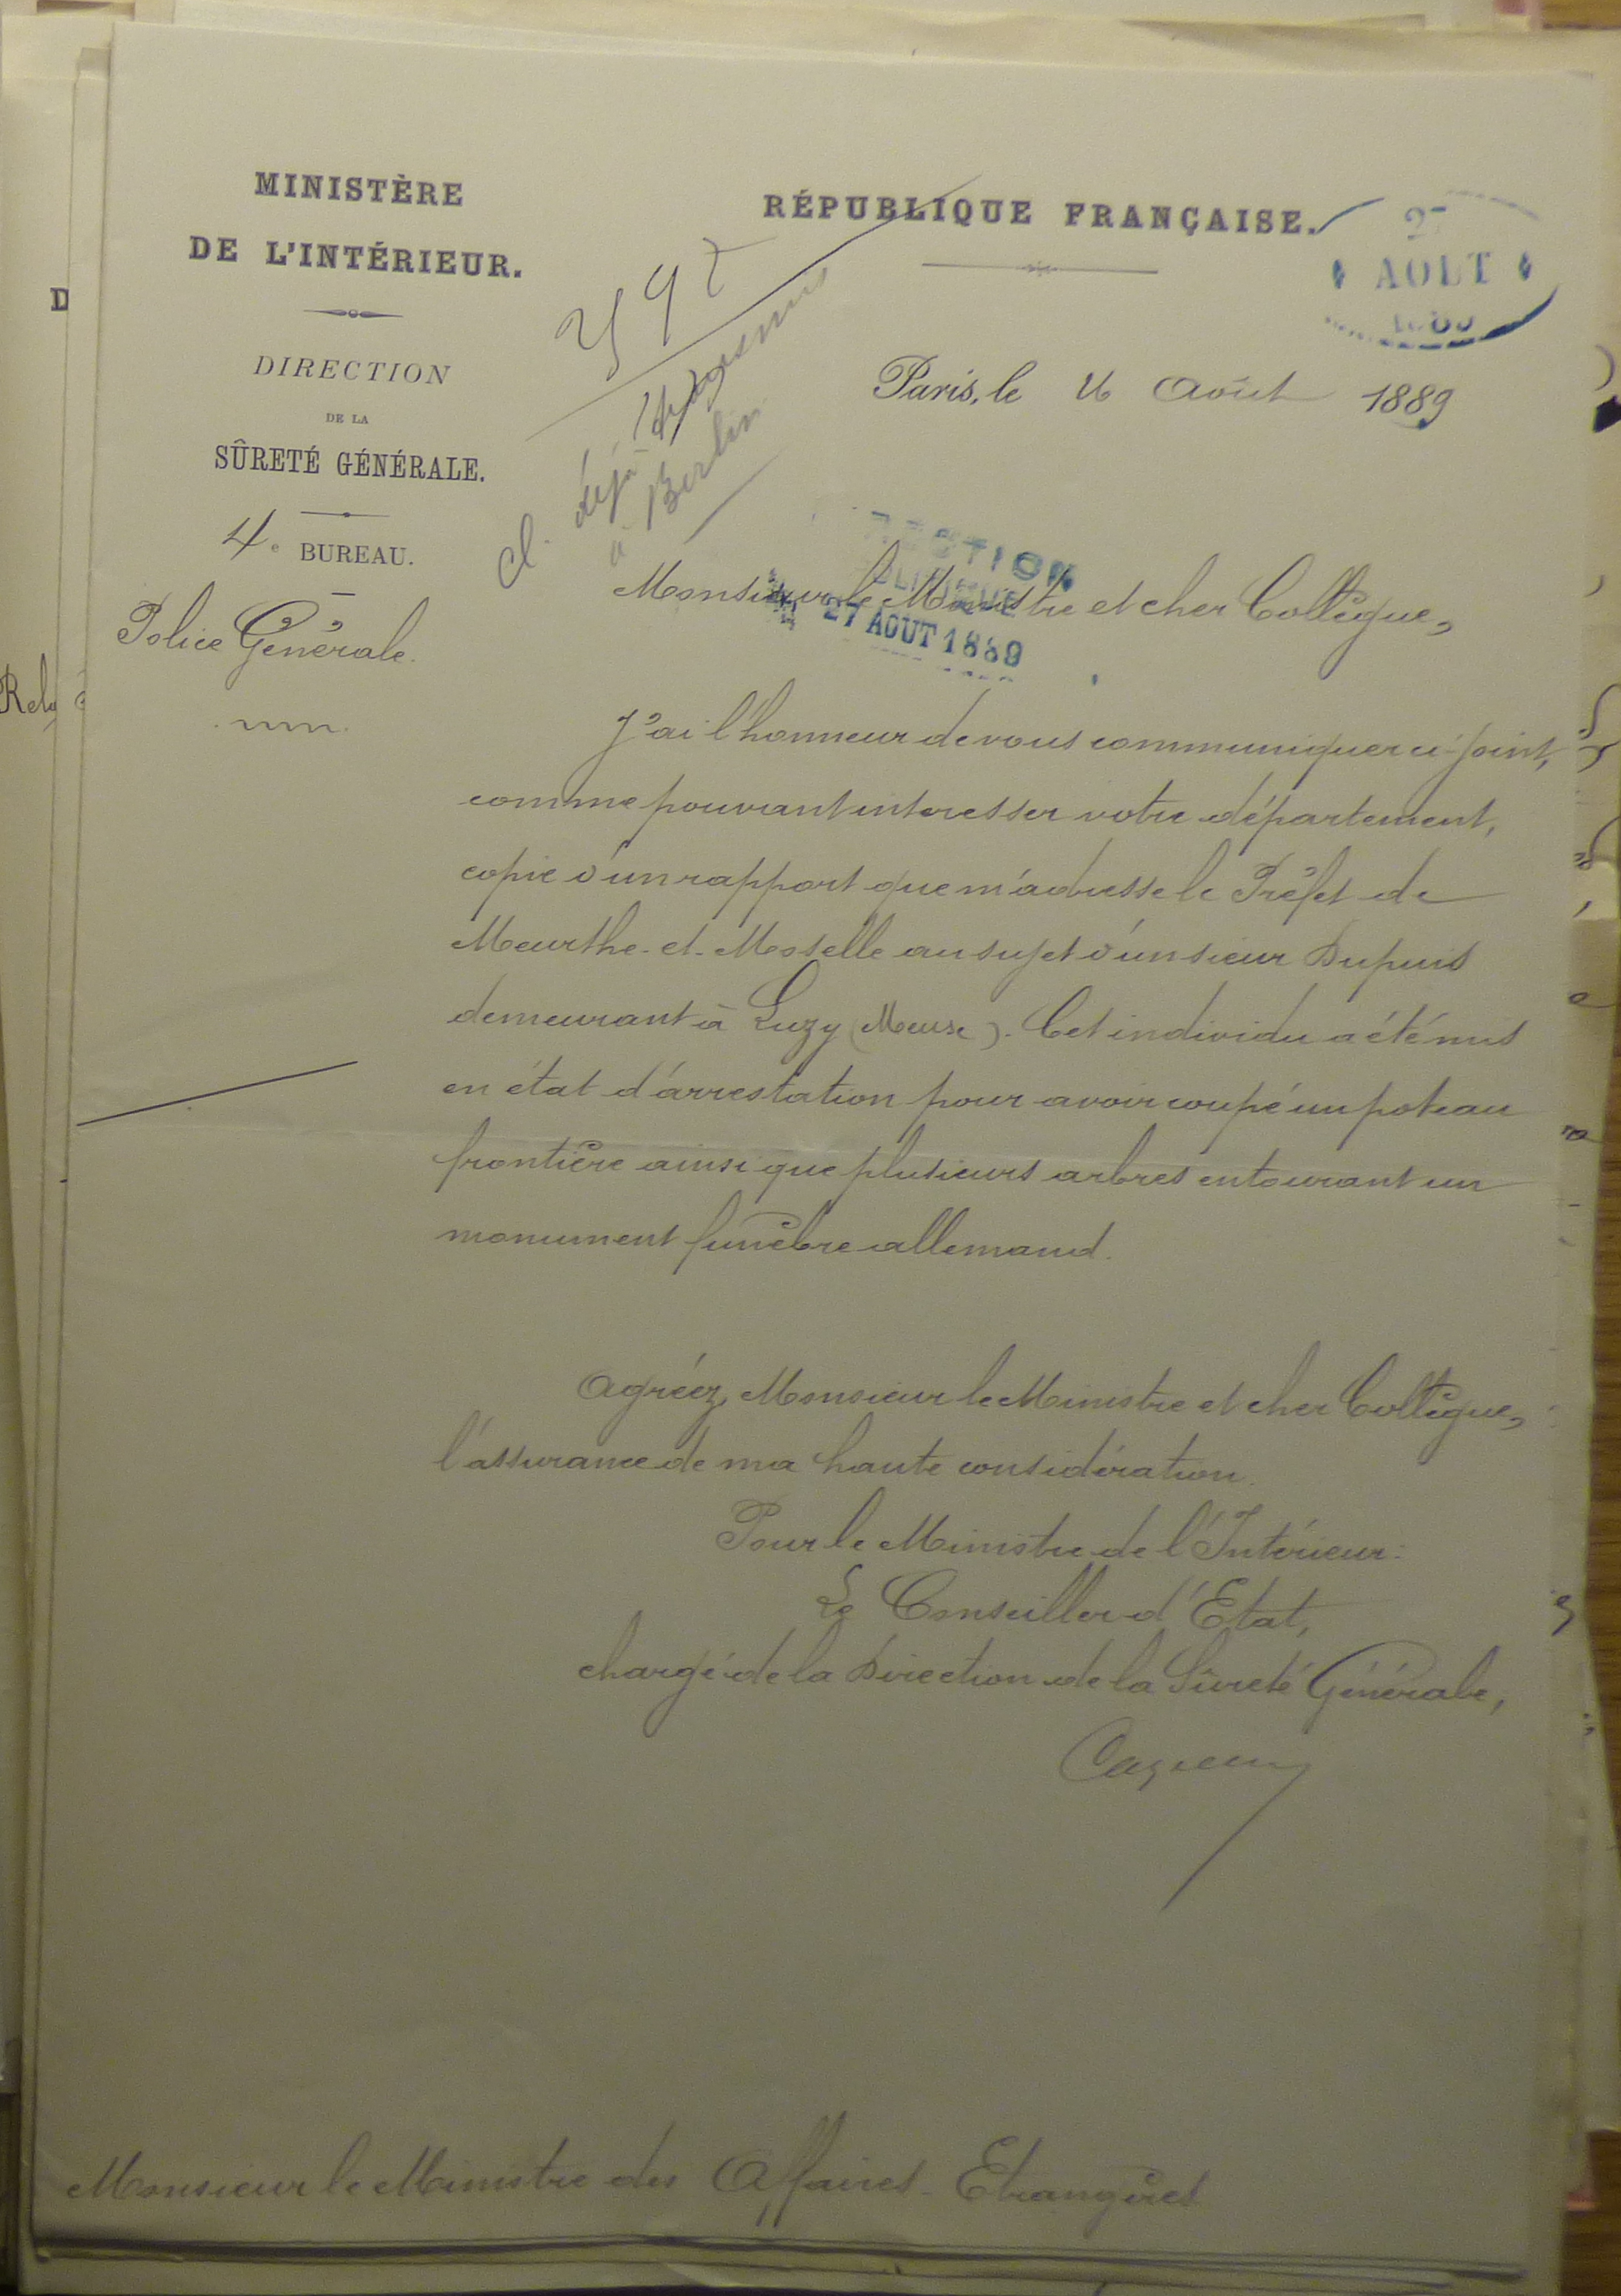 MINISTÈRE
DE L'INTÉRIEUR.
DIRECTION
DE LA
SÛRETÉ GÉNÉRALE.
4e BUREAU.
Police Générale.
RÉPUBLIQUE FRANÇAISE.
27
AOUT
Paris, le 26 Août 1889
cl. déjà
à Berlin
27 AOUT 1889
Monsieur le Ministre et cher Collègue,
J'ai l'honneur de vous communiquer ci-joint,
comme pouvant intéresser votre département,
copie d'un rapport que m'adresse le Préfet de
Meurthe-et-Moselle au sujet d'un sieur Dupuis
demeurant à Luzy (Meuse). Cet individu a été mis
en état d'arrestation pour avoir coupé un poteau
frontière ainsi que plusieurs arbres entourant un
monument funèbre allemand.
Agréez, Monsieur le Ministre et cher Collègue,
l'assurance de ma haute considération.
Pour le Ministre de l'Intérieur:
Le Conseiller d'Etat,
chargé de la Direction de la Sûreté Générale,
Monsieur le Ministre des Affaires Etrangères